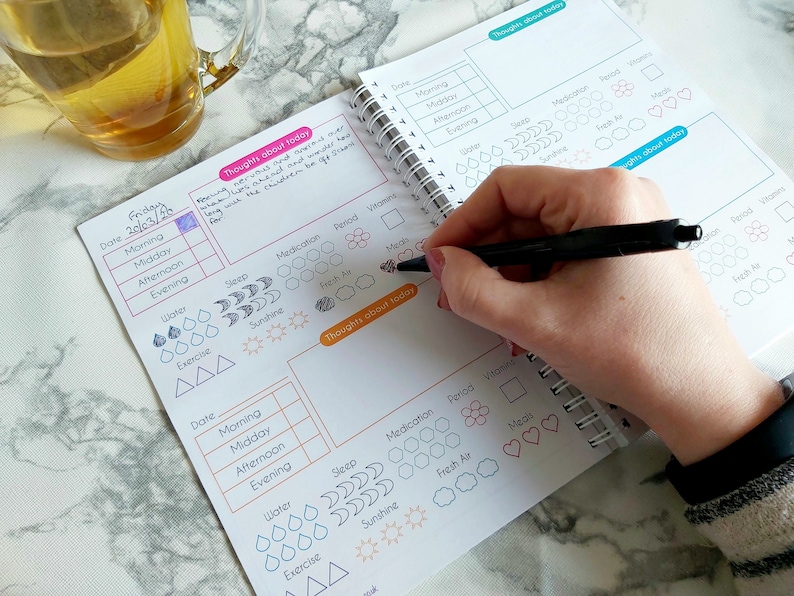 Thoughts about today
Friday
Date 20/03/20
Feeling nervous and anxious over
what lies ahead and wonder how
long will the children be off school
for.
Morning
Midday
Afternoon
Evening
Water
Sleep
Medication
Period
Vitamins
Exercise
Sunshine
Fresh Air
Meals
Thoughts about today
Date
Morning
Midday
Afternoon
Evening
Water
Sleep
Medication
Period
Vitamins
Exercise
Sunshine
Fresh Air
Meals
Thoughts about today
Date
Morning
Midday
Afternoon
Evening
Water
Sleep
Medication
Period
Vitamins
Sunshine
Fresh Air
Meals
Thoughts about today
Period
Vitamins
Fresh Air
Meals